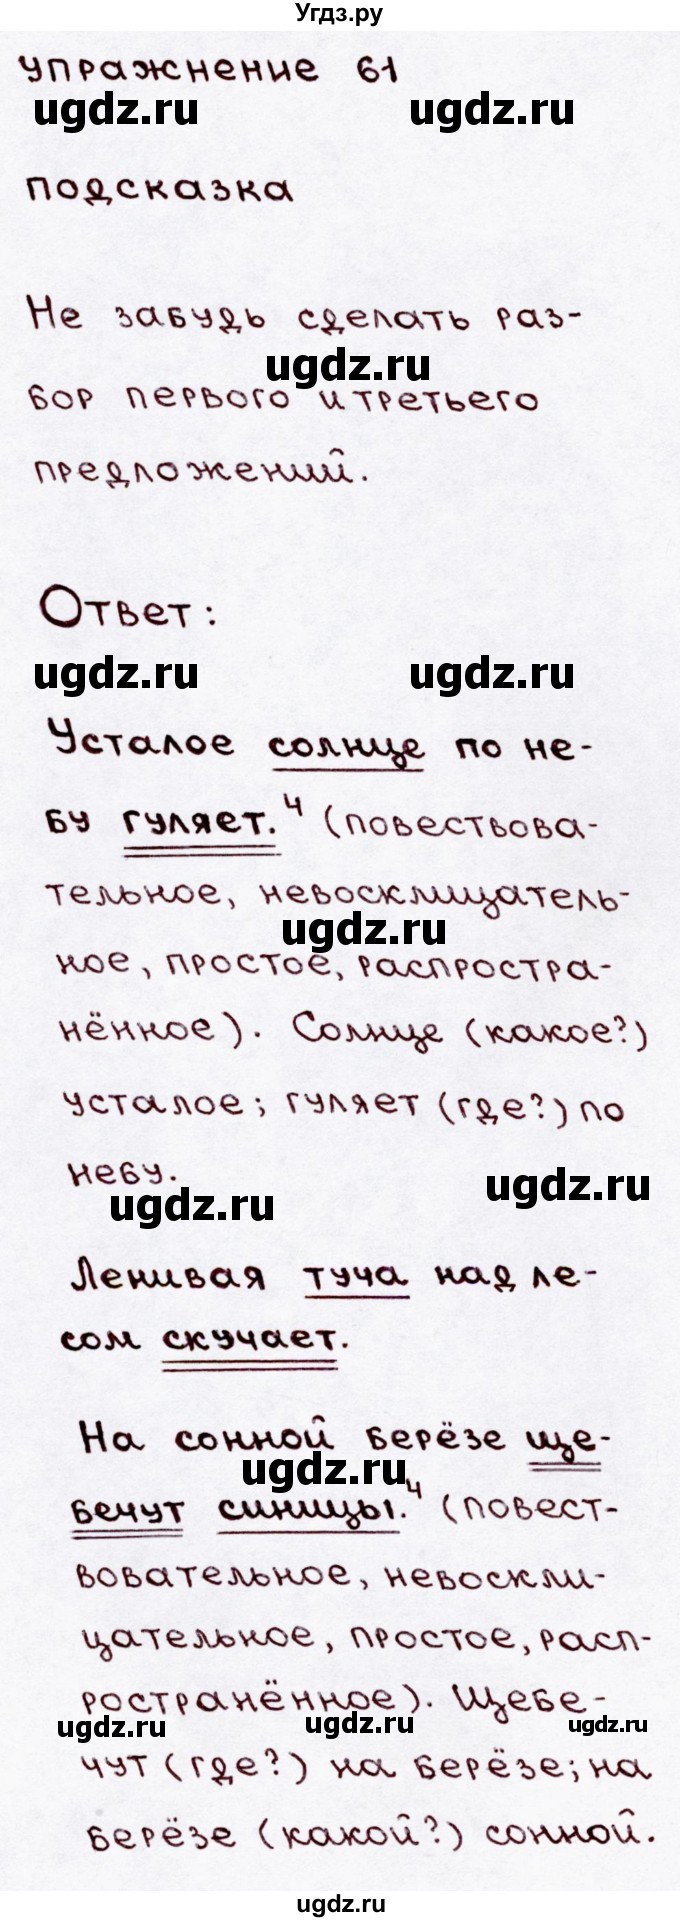 Угдз.ру
упражнение 61
ugdz.ru ugdz.ru
подсказка
Не забудь сделать раз-
ugdz.ru
бор первого и третьего
предложений.
Ответ:
ugdz.ru ugdz.ru
Усталое солнце по не-
бу гуляет.⁴ (повествова-
тельное, невосклицатель-
ugdz.ru
ное, простое, распростра-
нённое). Солнце (какое?)
усталое; гуляет (где?) по
небу.
ugdz.ru ugdz.ru
Ленивая туча над ле-
сом скучает.
На сонной берёзе ще-
ugdz.ru
бечут синицы.⁴ (повест-
вовательное, невоскли-
цательное, простое, расп-
ространённое). Щебе-
ugdz.ru ugdz.ru ugdz.ru
чут (где?) на берёзе; на
берёзе (какой?) сонной.
ugdz.ru